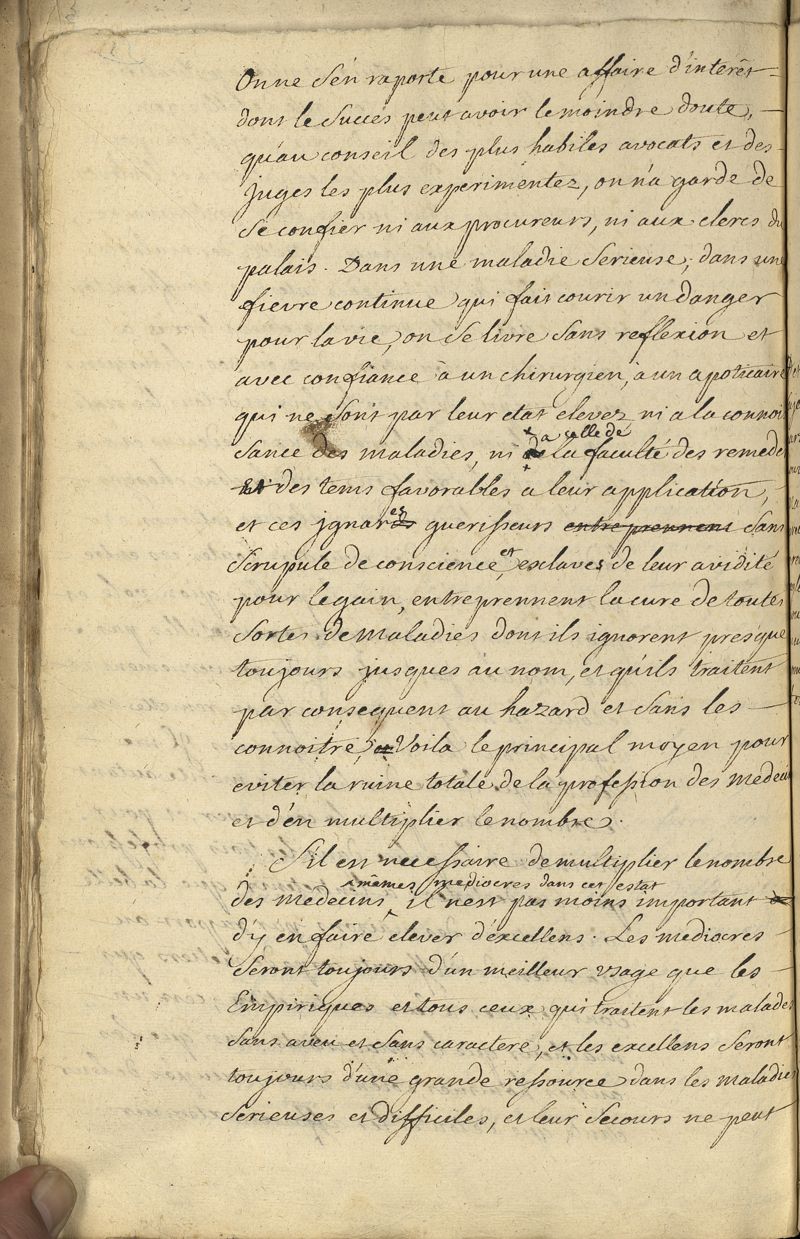 On ne s'en raporte pour une affaire d'interêt
dont le succés peut avoir le moindre doute,
qu'au conseil des plus habiles avocats et des
juges les plus experimentez, on n'a garde de
se confier ni aux procureurs, ni aux clercs du
palais. Dans une maladie serieuse, dans une
fievre continue qui fait courir un danger
pour la vie, on se livre sans reflexion et
avec confiance à un chirurgien, à un apoticaire
qui ne sont par leur etat elevez ni a la connoi
sance des maladies, ni
a celle de
la faculté des remedes
Et des tems favorables a leur application,
et ces jgnares guerisseurs entreprennent sans
scrupule de conscience, et esclaves de leur avidité
pour le gain, entreprennent la cure de toutes
sortes de maladies dont ils ignorent presque
toujours jusques au nom, et qu'ils traitent
par consequent au hazard et sans les
connoitre, Voila le principal moyen pour
eviter la ruine totale de la profession des medecins
et d'en multiplier le nombre.
S'il est necessaire de multiplier le nombre
mêmes mediocres dans cet estat
des medecins, il n'est pas moins important
d'y en faire elever d'excellens. Les mediocres
seront toujours d'un meilleur usage que les
Empiriques et tous ceux qui traitent les malades
sans aveu et sans caractere, et les excellens seront
toujours d'une grande ressource dans les maladies
serieuses et difficiles, et leur secours ne peut